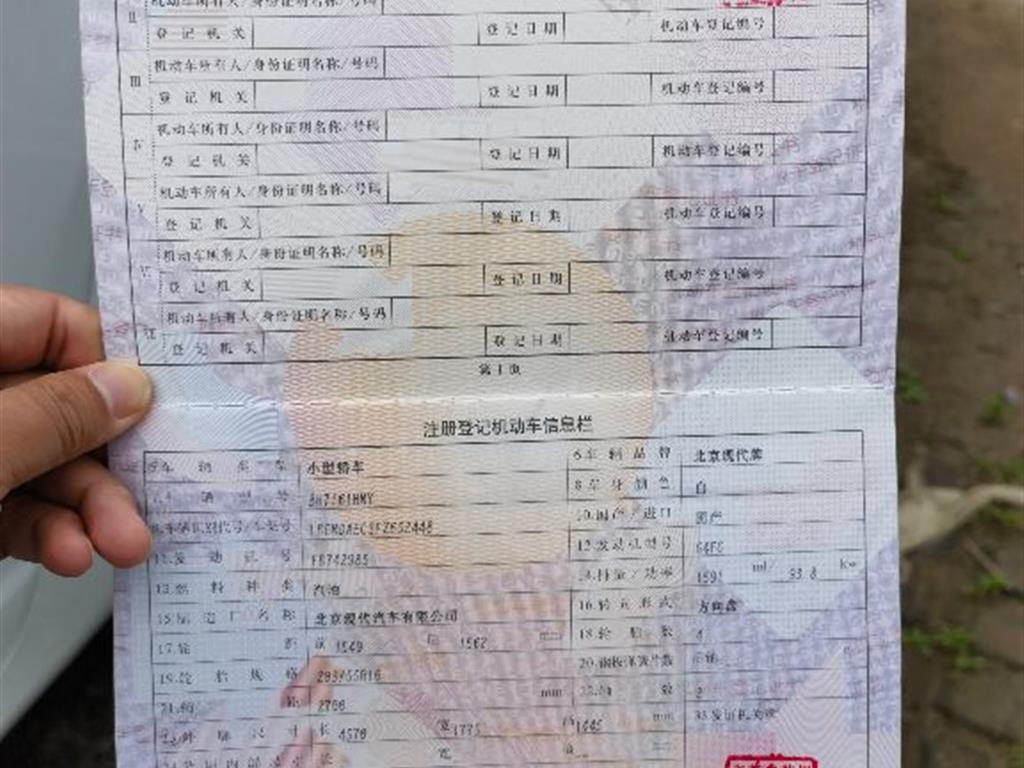 II 机动车所有人/身份证明名称/号码
登记机关 登记日期 机动车登记编号
III 机动车所有人/身份证明名称/号码
登记机关 登记日期 机动车登记编号
IV 机动车所有人/身份证明名称/号码
登记机关 登记日期 机动车登记编号
V 机动车所有人/身份证明名称/号码
登记机关 登记日期 机动车登记编号
VI 机动车所有人/身份证明名称/号码
登记机关 登记日期 机动车登记编号
VII 机动车所有人/身份证明名称/号码
登记机关 登记日期 机动车登记编号
第1页
注册登记机动车信息栏
5.车辆类型 小型轿车 6.车辆品牌 北京现代牌
7.车辆型号 8.车身颜色 白
9.车辆识别代号/车架号 10.国产/进口 国产
11.发动机号 12.发动机型号
13.燃料种类 汽油 14.排量/功率 1591 ml/ 93.8 Kw
15.制造厂名称 北京现代汽车有限公司 16.转向形式 方向盘
17.轮距 前 1549 后 1562 mm 18.轮胎数 4
19.轮胎规格 20.钢板弹簧片数
21.轴距 2700 mm 22.轴数 2
23.外廓尺寸 长 4570 宽 1775 高 1445 mm 33.发证机关章